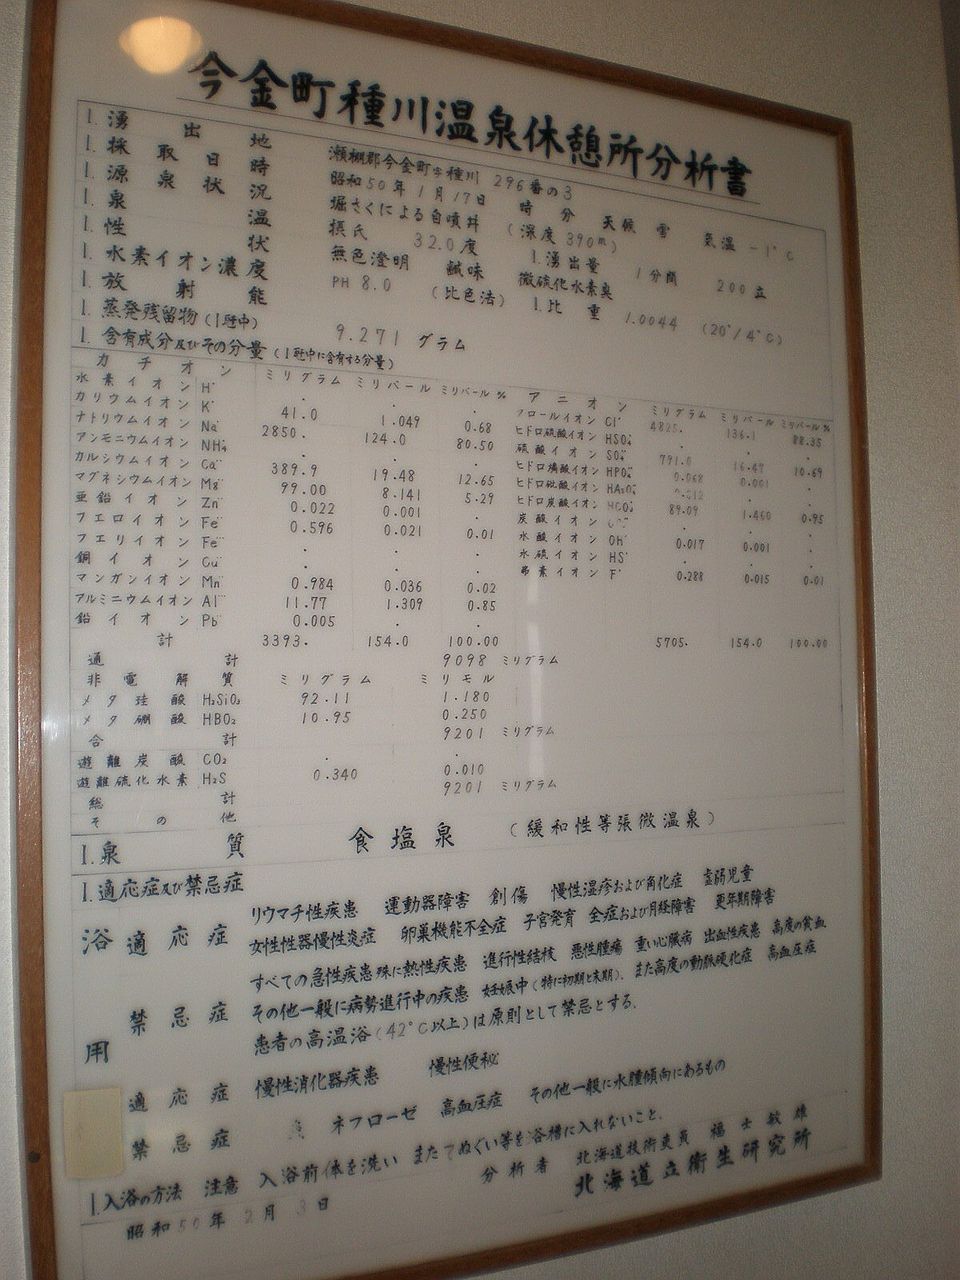 今金町種川温泉休憩所分析書
1. 湧出地 瀬棚郡今金町字種川 296番の3
1. 採取日時 昭和50年1月17日 時 分 天候 雪 気温 -1°C
1. 源泉状況 堀さくによる自噴井 (深度 390m)
1. 泉温 摂氏 32.0度 1. 湧出量 1分間 200立
1. 性状 無色澄明 鹹味 微硫化水素臭
1. 水素イオン濃度 PH 8.0 (比色法) 1. 比重 1.0044 (20°/4°C)
1. 放射能
1. 蒸発残留物(1瓩中) 9.271 グラム
1. 含有成分及びその分量(1瓩中に含有する分量)
カチオン ミリグラム ミリバール ミリバール% アニオン ミリグラム ミリバール ミリバール%
水素イオン H· . . . クロールイオン Cl' 4825. 136.1 88.35
カリウムイオン K· 41.0 1.049 0.68 ヒドロ硫酸イオン HSO4' . . .
ナトリウムイオン Na· 2850. 124.0 80.50 硫酸イオン SO4'' 791.0 16.47 10.69
アンモニウムイオン NH4· . . . ヒドロ燐酸イオン HPO4'' 0.068 0.001 .
カルシウムイオン Ca·· 389.9 19.48 12.65 ヒドロ砒酸イオン HAsO4'' 0.012 . .
マグネシウムイオン Mg·· 99.00 8.141 5.29 ヒドロ炭酸イオン HCO3' 89.09 1.460 0.95
亜鉛イオン Zn·· 0.022 0.001 . 炭酸イオン . . .
フエロイオン Fe·· 0.596 0.021 0.01 水酸イオン OH' 0.017 0.001 .
フエリイオン Fe··· . . . 水硫イオン HS' . . .
銅イオン Cu·· . . . 弗素イオン F' 0.288 0.015 0.01
マンガンイオン Mn·· 0.984 0.036 0.02
アルミニウムイオン Al··· 11.77 1.309 0.85
鉛イオン Pb·· 0.005 . .
計 3393. 154.0 100.00 5705. 154.0 100.00
通計 9098 ミリグラム
非電解質 ミリグラム ミリモル
メタ珪酸 H2SiO3 92.11 1.180
メタ硼酸 HBO2 10.95 0.250
合計 9201 ミリグラム
遊離炭酸 CO2 . .
遊離硫化水素 H2S 0.340 0.010
総計 9201 ミリグラム
その他
1. 泉質 食塩泉 (緩和性等張微温泉)
1. 適応症及び禁忌症
浴用
適応症 リウマチ性疾患 運動器障害 創傷 慢性湿疹および角化症 虚弱児童
女性性器慢性炎症 卵巣機能不全症 子宮発育 全症および月経障害 更年期障害
禁忌症 すべての急性疾患殊に熱性疾患 進行性結核 悪性腫瘍 重い心臓病 出血性疾患 高度の貧血
その他一般に病勢進行中の疾患 妊娠中(特に初期と末期)、また高度の動脈硬化症 高血圧症
患者の高温浴(42°C以上)は原則として禁忌とする。
適応症 慢性消化器疾患 慢性便秘
禁忌症 ネフローゼ 高血圧症 その他一般に水腫傾向にあるもの
1. 入浴の方法 注意 入浴前体を洗い またてぬぐい等を浴槽に入れないこと。
分析者 北海道技術吏員 福士敏雄
昭和50年2月3日 北海道立衛生研究所